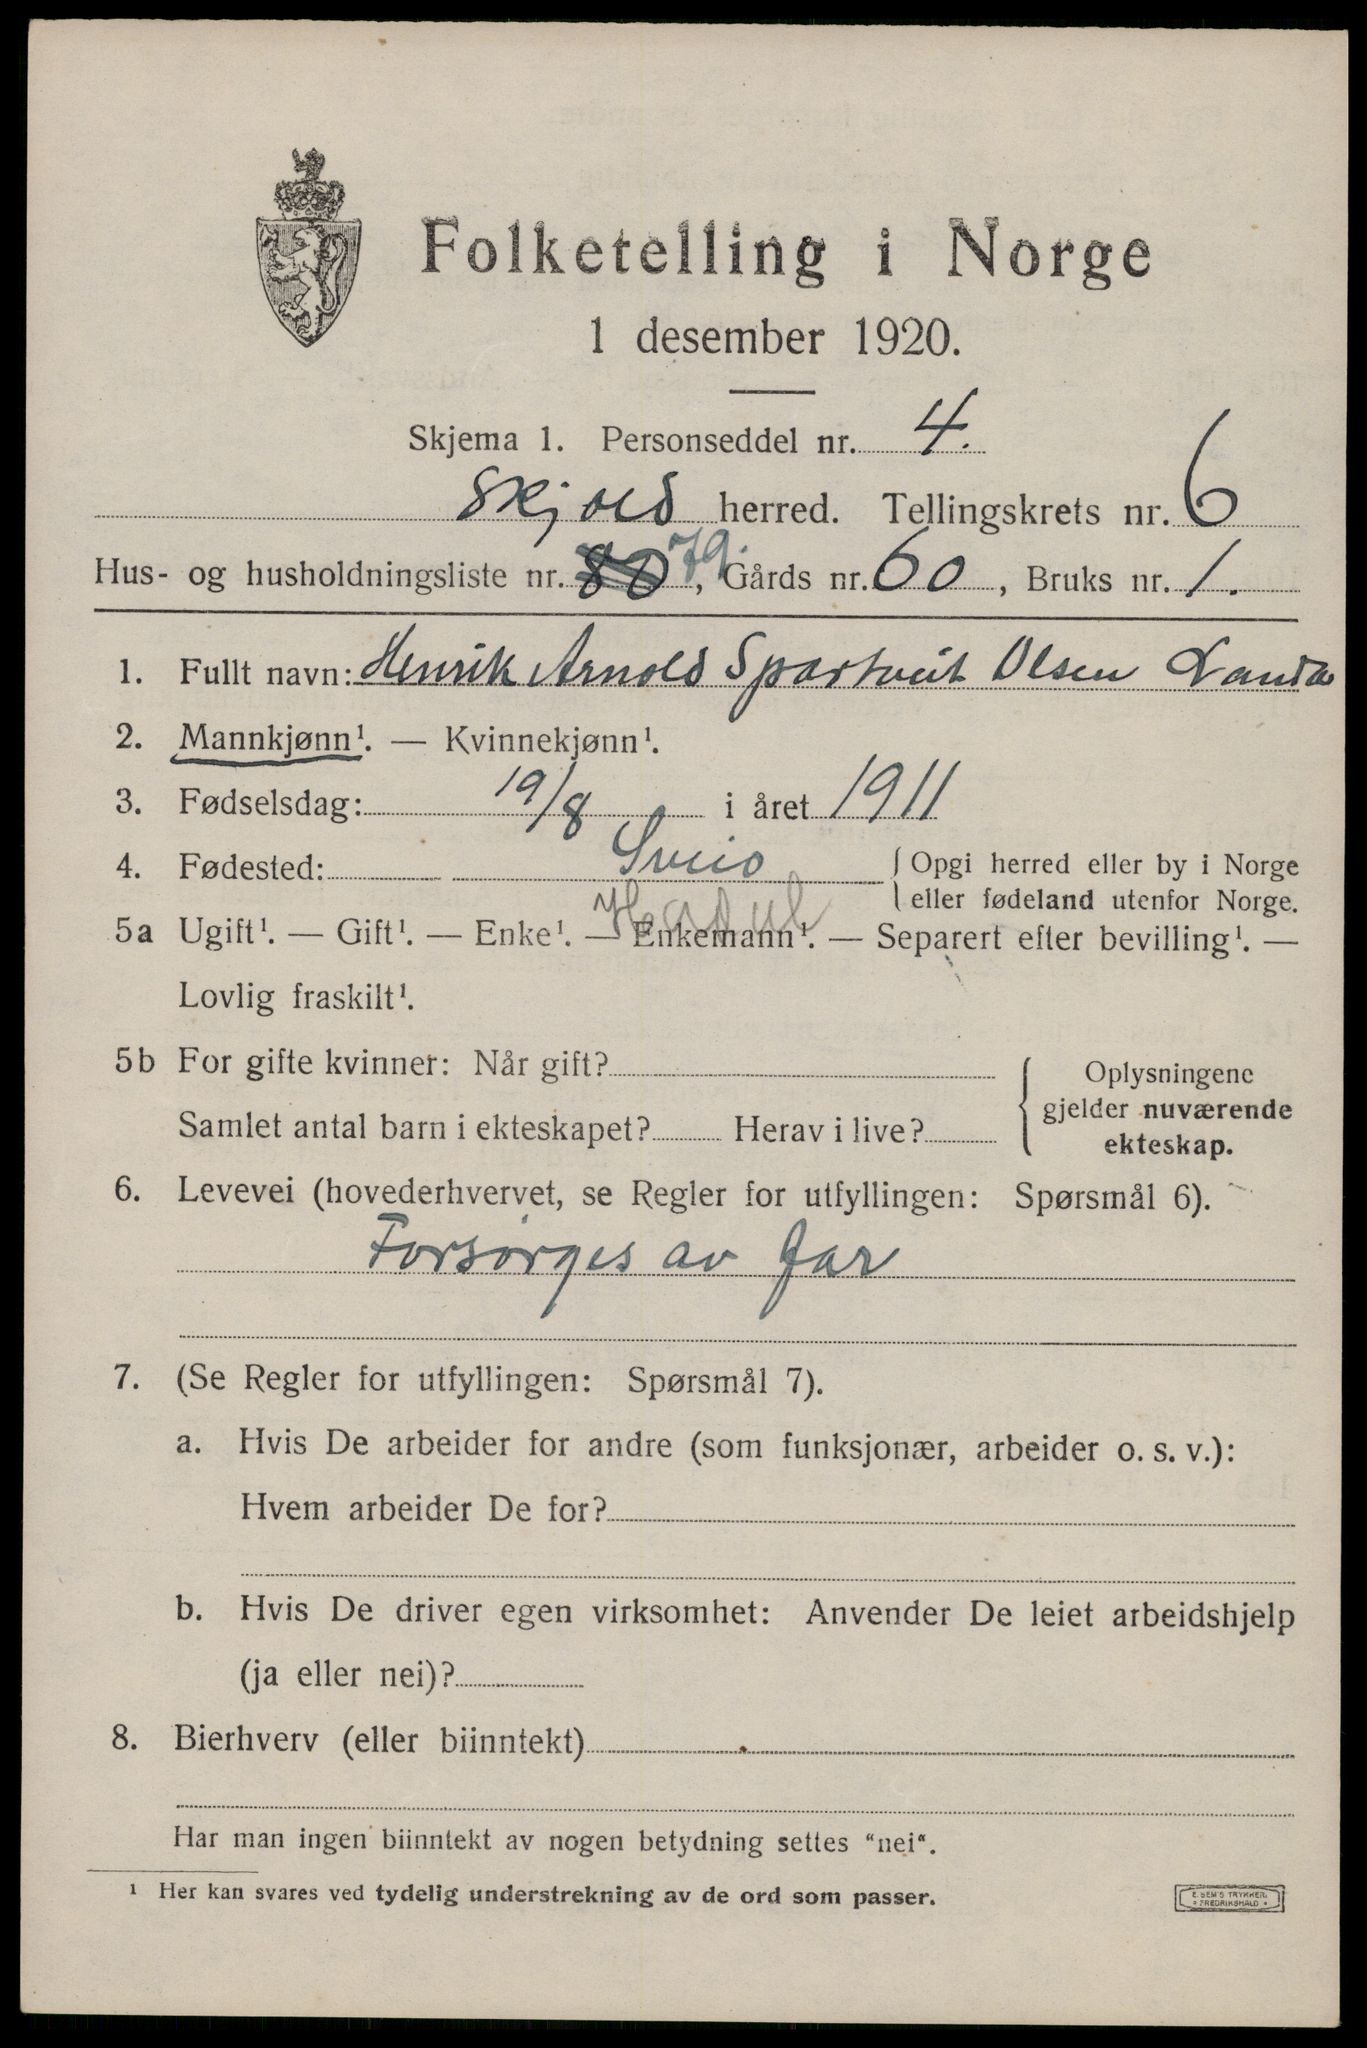 Folketelling i Norge
1 desember 1920.
Skjema 1. Personseddel nr. 4.
Skjold herred. Tellingskrets nr. 6
Hus- og husholdningsliste nr. 80 79., Gårds nr. 60, Bruks nr. 1.
1. Fullt navn: Henrik Arnold Spartveit Olsen Landa
2. Mannkjønn¹. — Kvinnekjønn¹.
3. Fødselsdag: 19/8 i året 1911
4. Fødested: Sveio { Opgi herred eller by i Norge
eller fødeland utenfor Norge.
5a Ugift¹. — Gift¹. — Enke¹. — Enkemann¹. — Separert efter bevilling¹. —
Lovlig fraskilt¹.
5b For gifte kvinner: Når gift?
Samlet antal barn i ekteskapet? Herav i live?
Oplysningene
gjelder nuværende
ekteskap.
6. Levevei (hovederhvervet, se Regler for utfyllingen: Spørsmål 6).
Forsørges av far
7. (Se Regler for utfyllingen: Spørsmål 7).
a. Hvis De arbeider for andre (som funksjonær, arbeider o. s. v.):
Hvem arbeider De for?
b. Hvis De driver egen virksomhet: Anvender De leiet arbeidshjelp
(ja eller nei)?
8. Bierhverv (eller biinntekt)
Har man ingen biinntekt av nogen betydning settes "nei".
¹ Her kan svares ved tydelig understrekning av de ord som passer.
E. SEM'S TRYKKERI
FREDRIKSHALD